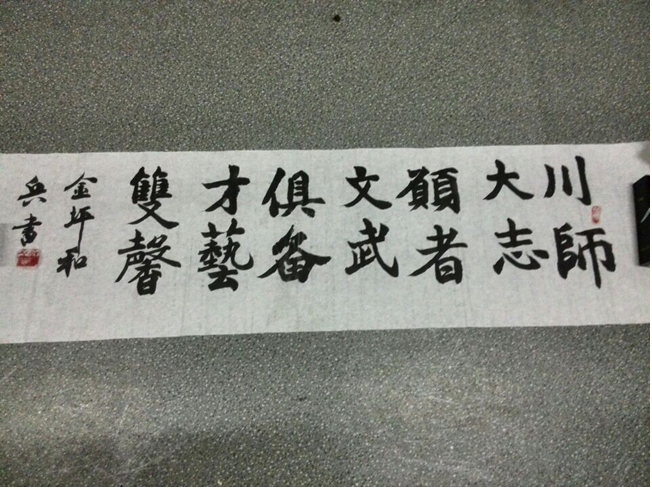 川師
大志
願者
文武
俱备
才藝
雙馨
金坪和
兵書